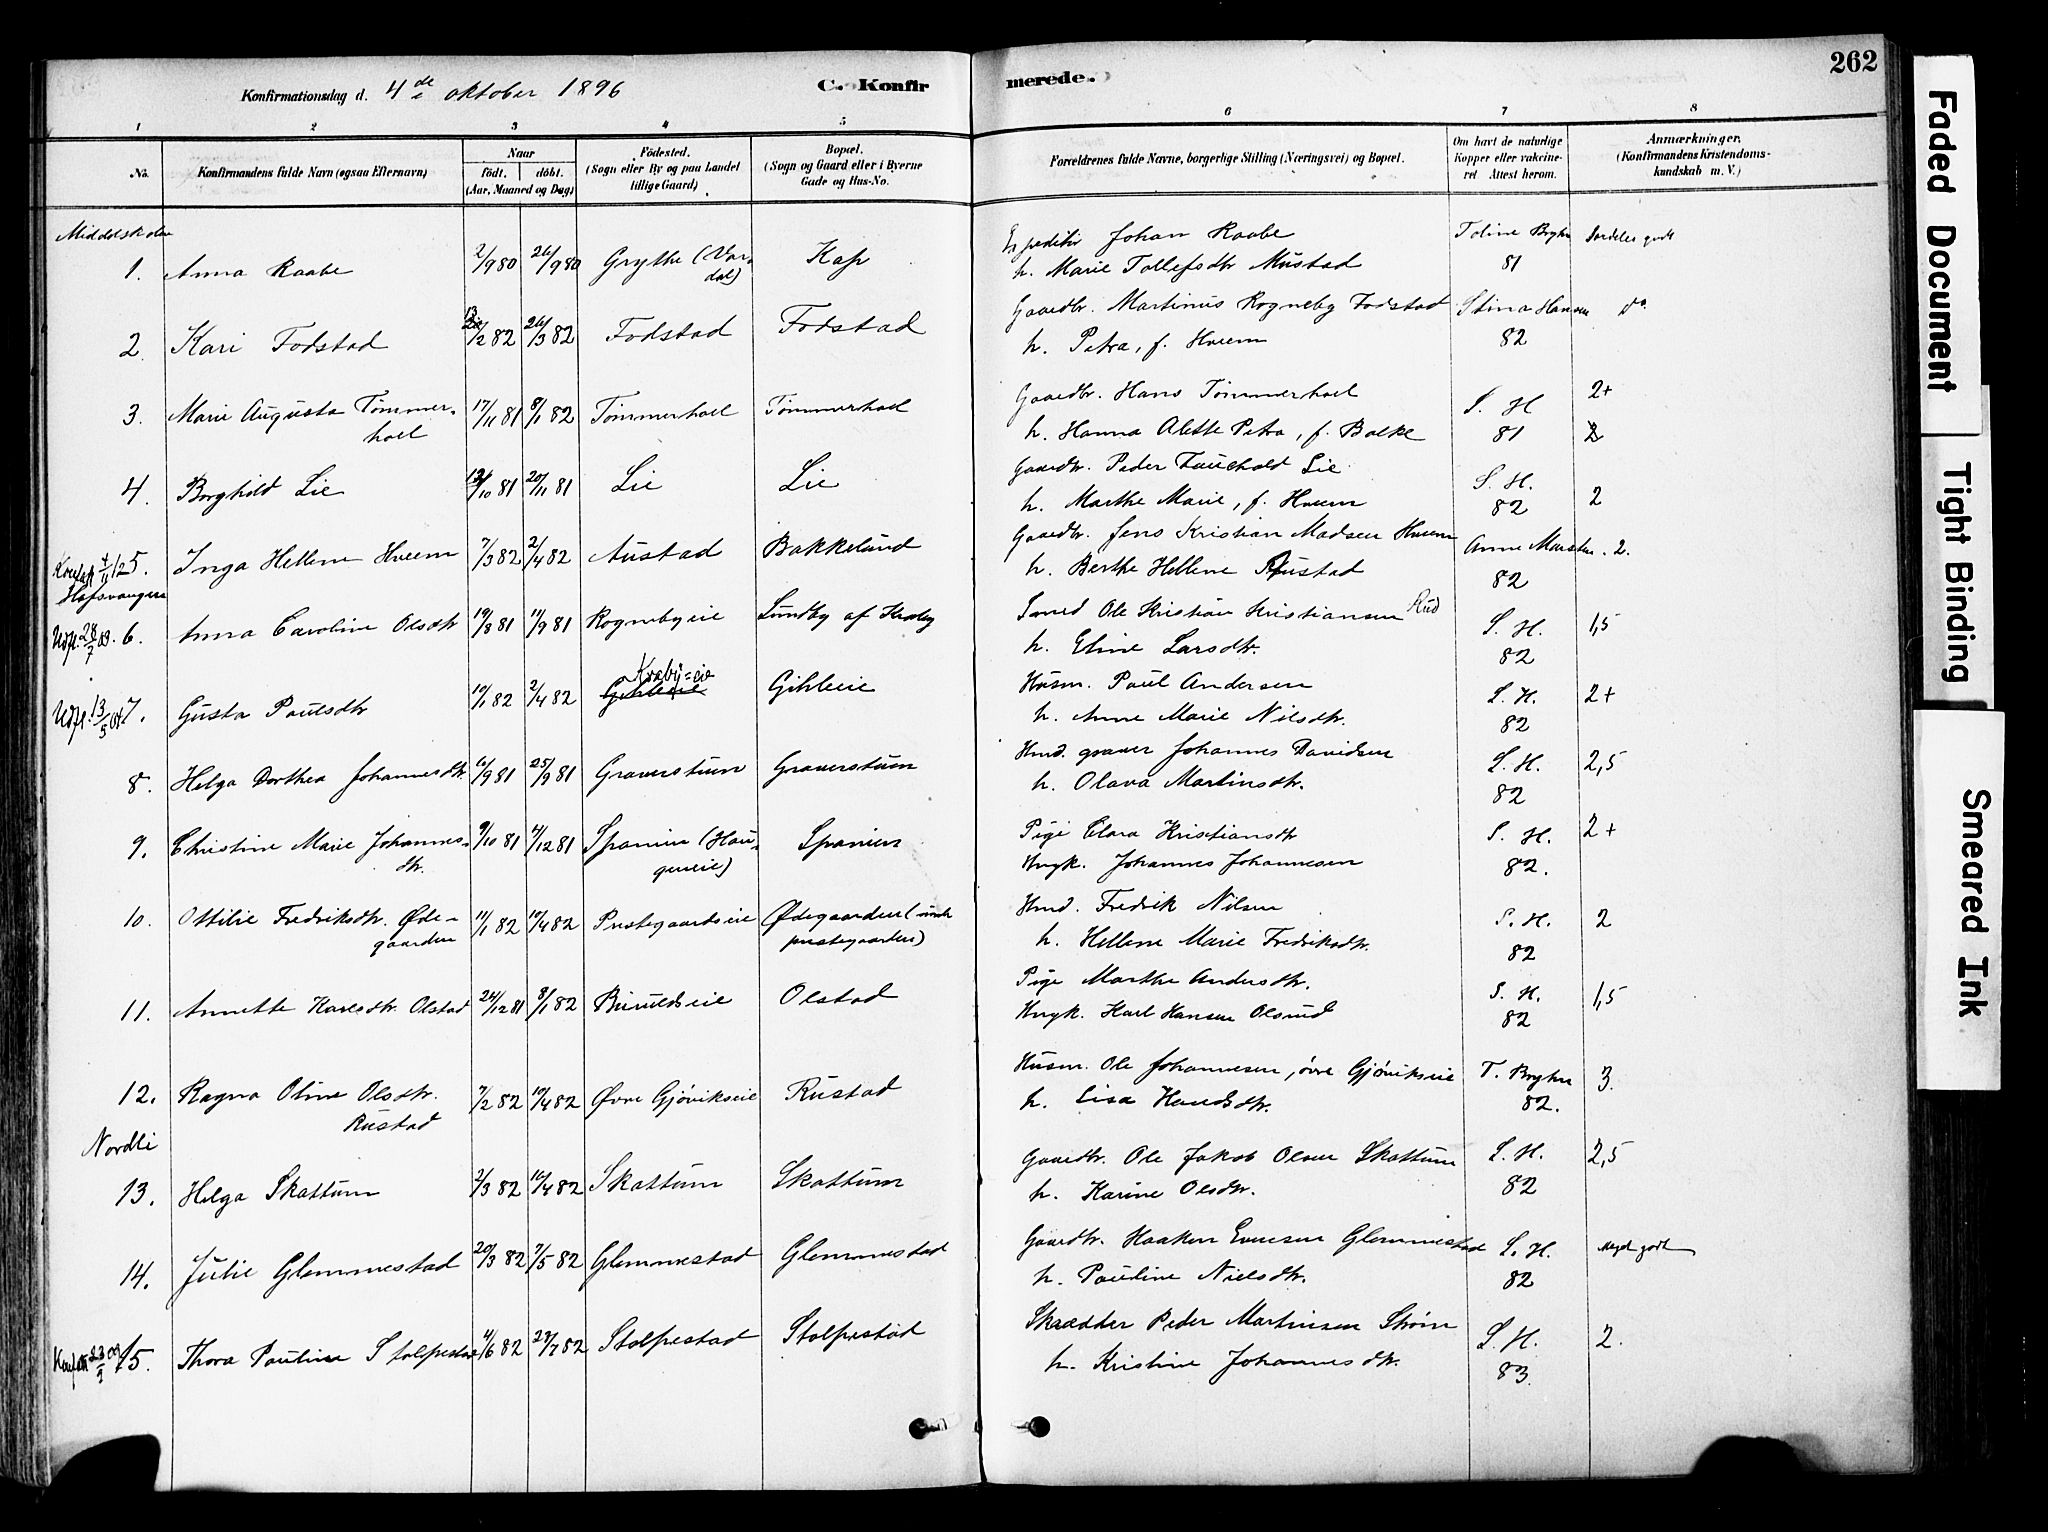 262
Konfirmationsdag d. 4de oktober 1896
C. Konfirmerede.
1 2 3 4 5 6 7 8
No. Konfirmandens fulde Navn (ogsaa Efternavn) Naar födt. döbt. (Aar, Maaned og Dag) Födested. (Sogn eller By og paa Landet tillige Gaard) Bopæl. (Sogn og Gaard eller i Byerne Gade og Hus-No. Forældrenes fulde Navne, borgerlige Stilling (Næringsvei) og Bopæl. Om havt de naturlige Kopper eller vaccineret Attest herom. Anmærkninger. (Konfirmandens Kristendomskundskab m. V.)
Middelskolen
1. Anna Raabe 2/9 80 26/9 80 Grythe (Vardal) Kap
Johan Raabe
h. Marie Tollefsdtr Mustad
81
2. Kari Fodstad 13/2 82 26/3 82 Fodstad Fodstad
Gaardbr. Martinus Rogneby Fodstad Stina Hansen do
h. Petra, f. Hveem 82
3. Marie Augusta Tømmerhoel 17/11 81 8/1 82 Tømmerhoel Tømmerhoel
Gaardbr. Hans Tømmerhoel S. H 2+
h. Hanna Alette Petra, f. Balke 81
4. Borghild Lie /10 81 20/11 81 Lie Lie
Gaardbr. Peder Fauchald Lie S. H.
h. Marthe Marie, f. Hveem 82 2
5. Inga Hellene Hveem 7/3 82 2/4 82 Austad Bakkelund
Gaardbr. Jens Kristian Madsen Hveem 2.
h. Berthe Hellene 82
Udfl. 28/7 6. Anna Caroline Olsdtr 19/8 81 11/9 81 Rognebyeie Lundby af Kraby
Ole Kristian Kristiansen Rud S. H. 1,5
h. Eline Larsdtr. 82
Udfl. 13/5 7. Gusta Paulsdtr 10/1 82 2/4 82 Krabyeie Gihleie
Husm. Paul Andersen S. H. 2+
h. Anne Marie Nilsdtr. 82
8. Helga Dorthea Johannesdtr 6/9 81 25/9 81 Graverstuen Graverstuen
Hmd. graver Johannes Davidsen S. H. 2,5
h. Olava Martinsdtr. 82
9. Christine Marie Johannesdtr. 9/10 81 4/12 81 Spanien (Haugeneie) Spanien
Pige Clara Kristiansdtr S. H. 2+
Ungk. Johannes Johannesen 82.
10. Ottilie Fredriksdtr. Ødegaarden 11/1 82 10/4 82 Prestegaardseie Ødegaarden (under prestegaarden)
Hmd. Fredrik Nilsen S. H. 2
h. Hellene Marie Fredriksdtr. 82
11. Annette Karlsdtr. Olstad 26/12 81 8/1 82 Olstad
Pige Marthe Andersdtr. S. H. 1,5
Ungk. Karl Hansen Olsrud 82
12. Ragna Oline Olsdtr. Rustad 7/2 82 10/4 82 Øvre Gjøvikseie Rustad
Husm. Ole Johannesen, øvre Gjøvikseie 3.
h. Lisa Hansdtr. 82.
Nordli
13. Helga Skattum 2/3 82 10/4 82 Skattum Skattum
Gaardbr. Ole Jakob Olsen Skattum S. H. 2,5
h. Karine Olsdtr. 82
14. Julie Glemmestad 20/3 82 7/5 82 Glemmestad Glemmestad
Gaardbr. Haaken Evensen Glemmestad S. H. Meget godt
h. Pauline Nielsdtr. 82
15. Thora Pauline Stolpestad 4/6 82 23/7 82 Stolpestad Stolpestad
Skrædder Peder Martinsen Strøm S. H. 2.
h. Kristine Johannesdtr. 83
Faded Document
Tight Binding
Smeared Ink